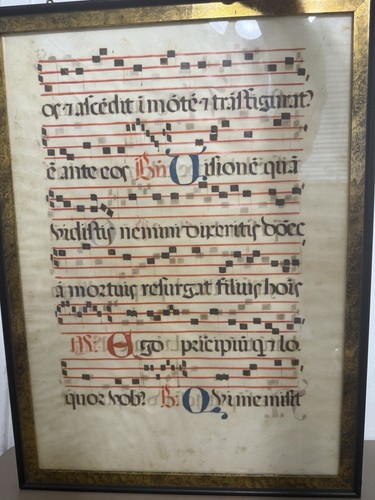 os ⁊ ascēdit ī mōtē ⁊ trāsfigurat?
ē ante eos Bn̄ Visionē quā
vidistis nemini dixeritis donec
a mortuis resurgat filius hoīs
Ego principiū q ⁊ lo
quor vob? Qui me misit